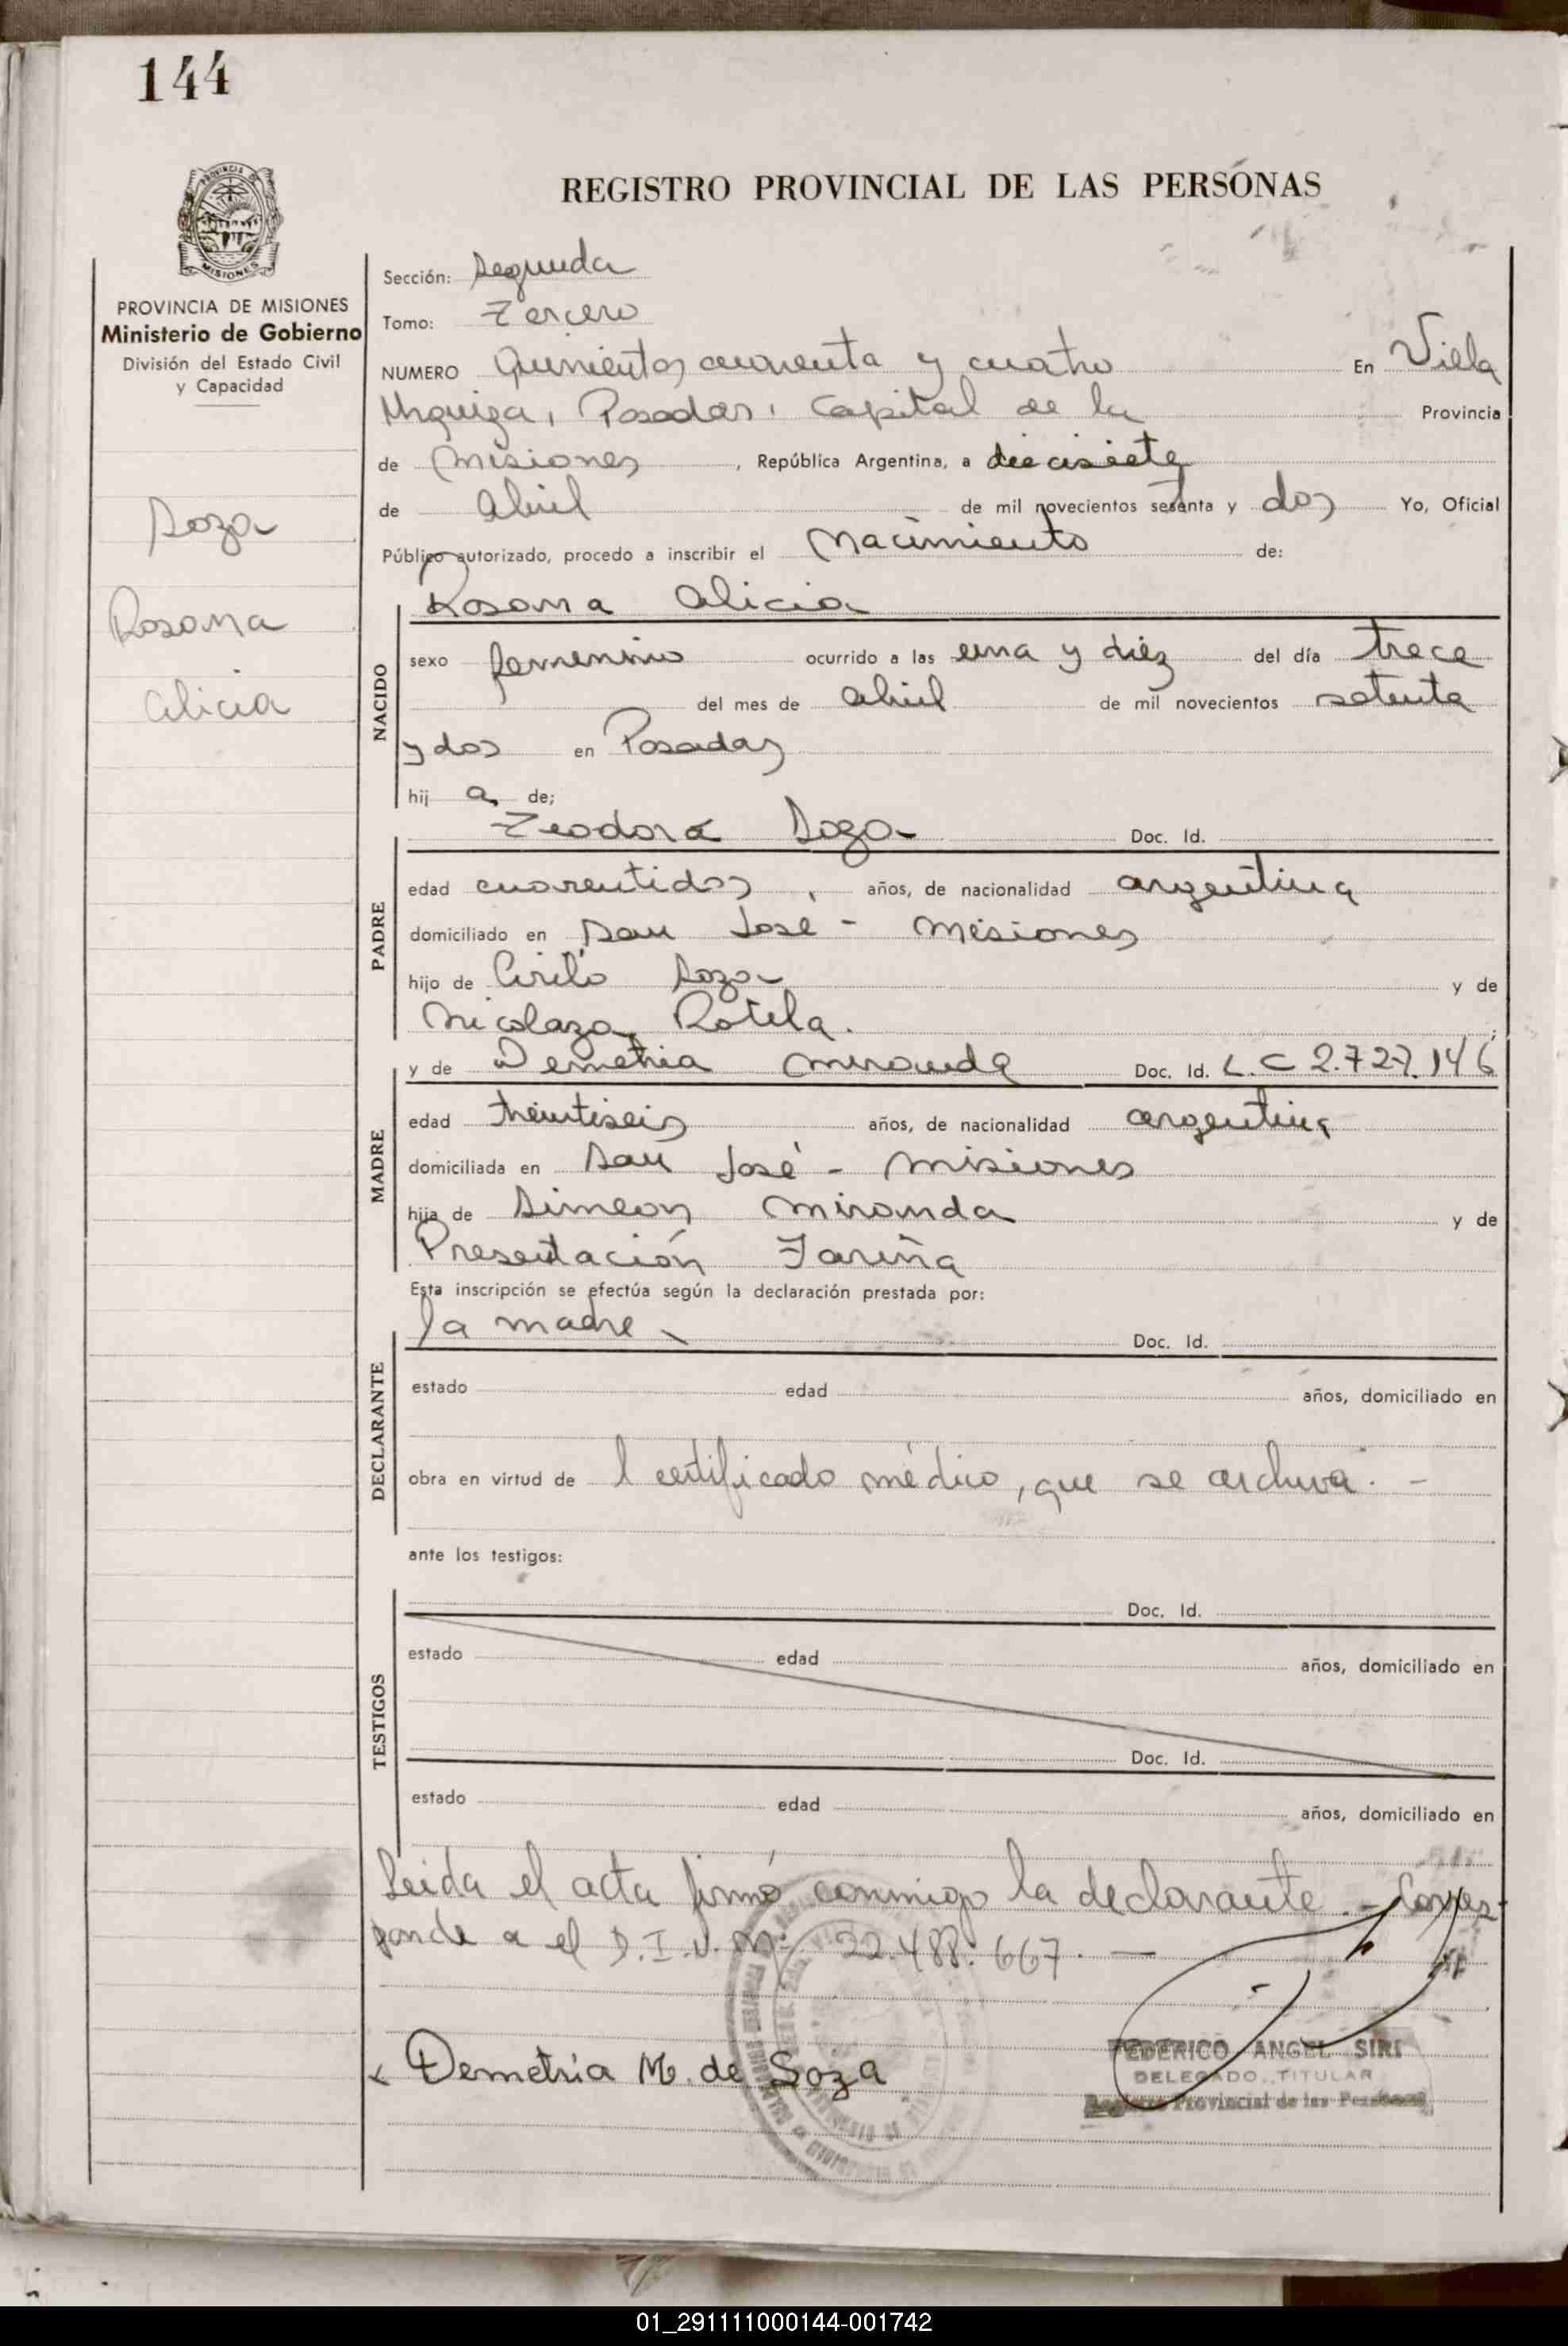 144
REGISTRO PROVINCIAL DE LAS PERSONAS
PROVINCIA DE MISIONES
Ministerio de Gobierno
División del Estado Civil
y Capacidad
Soza
Rosana
Alicia
Sección: Segunda
Tomo: Tercero
NUMERO Quinientos cuarenta y cuatro En Villa
Urquiza, Posadas, Capital de la Provincia
de Misiones, República Argentina, a diecisiete
de abril de mil novecientos setenta y dos Yo, Oficial
Público autorizado, procedo a inscribir el Nacimiento de:
NACIDO
Rosana Alicia
sexo femenino ocurrido a las una y diez del día trece
del mes de abril de mil novecientos setenta
y dos en Posadas
hij a de;
PADRE
Teodoro Soza Doc. Id.
edad cuarentidos, años, de nacionalidad argentina
domiciliado en San José - Misiones
hijo de Cirilo Soza y de
Nicolaza Rotela.
MADRE
y de Demetria Miranda Doc. Id. L.C 2.727.146
edad treintiseis años, de nacionalidad argentina
domiciliada en San José - Misiones
hija de Simeon Miranda y de
Presentación Fariña
Esta inscripción se efectúa según la declaración prestada por:
DECLARANTE
la madre Doc. Id.
estado edad años, domiciliado en
obra en virtud de l certificado médico, que se archiva. -
ante los testigos:
TESTIGOS
Doc. Id.
estado edad años, domiciliado en
Doc. Id.
estado edad años, domiciliado en
Leida el acta firmó conmigo la declarante. - Corres-
ponde a el D.I.U. Nº 22.488.667. -
Demetria M. de Soza
FEDERICO ANGEL SIRI
DELEGADO TITULAR
Registro Provincial de las Personas
01_291111000144-001742